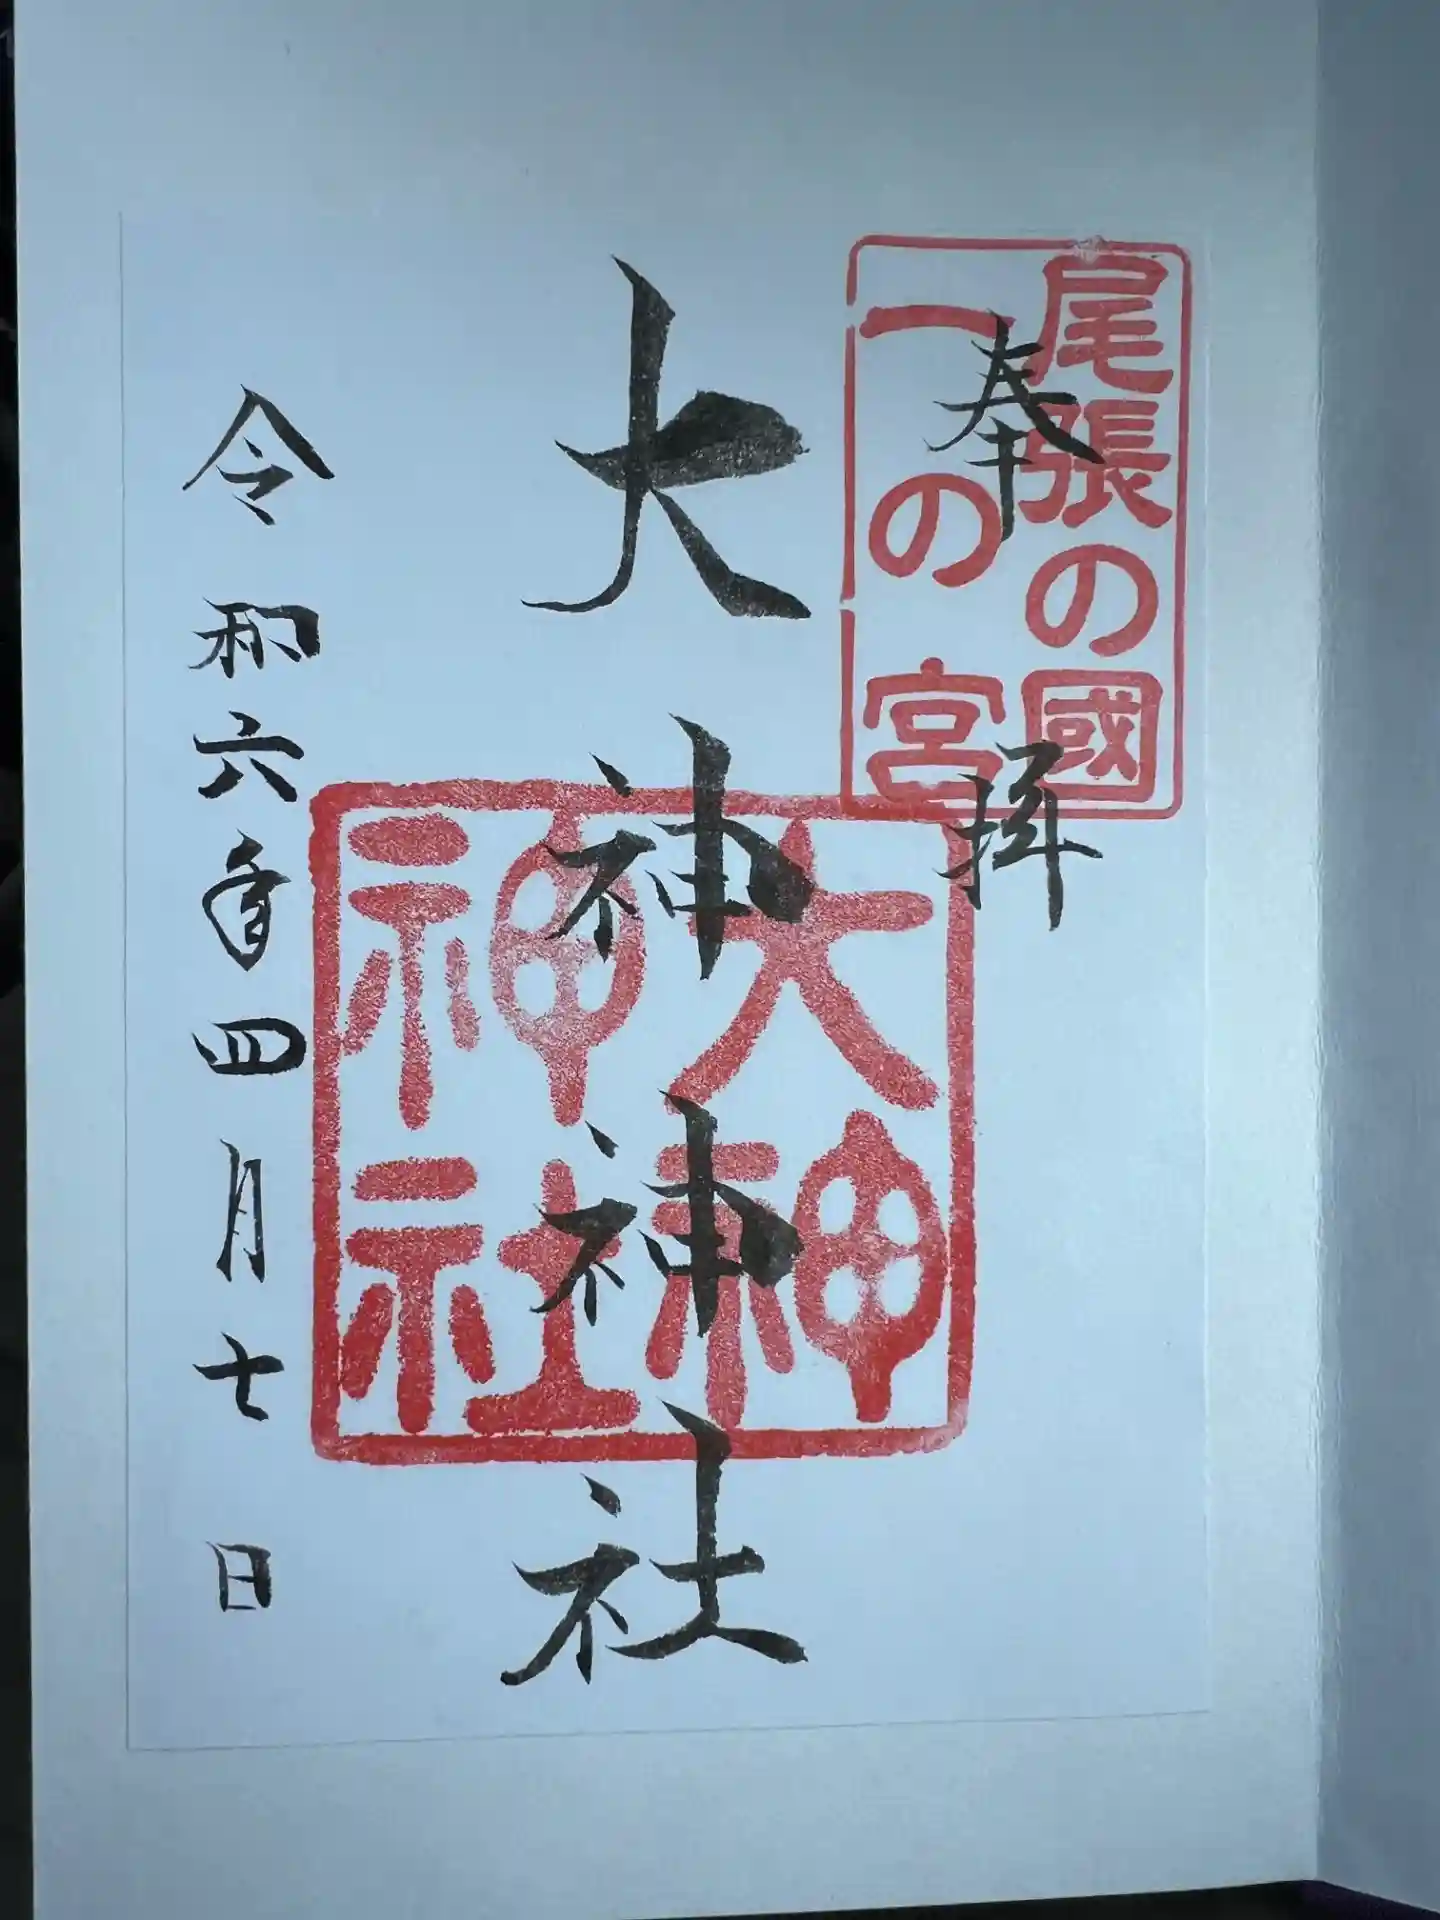 尾張の國
一の宮
奉拝
大神神社
大神
神社
令和六年四月七日